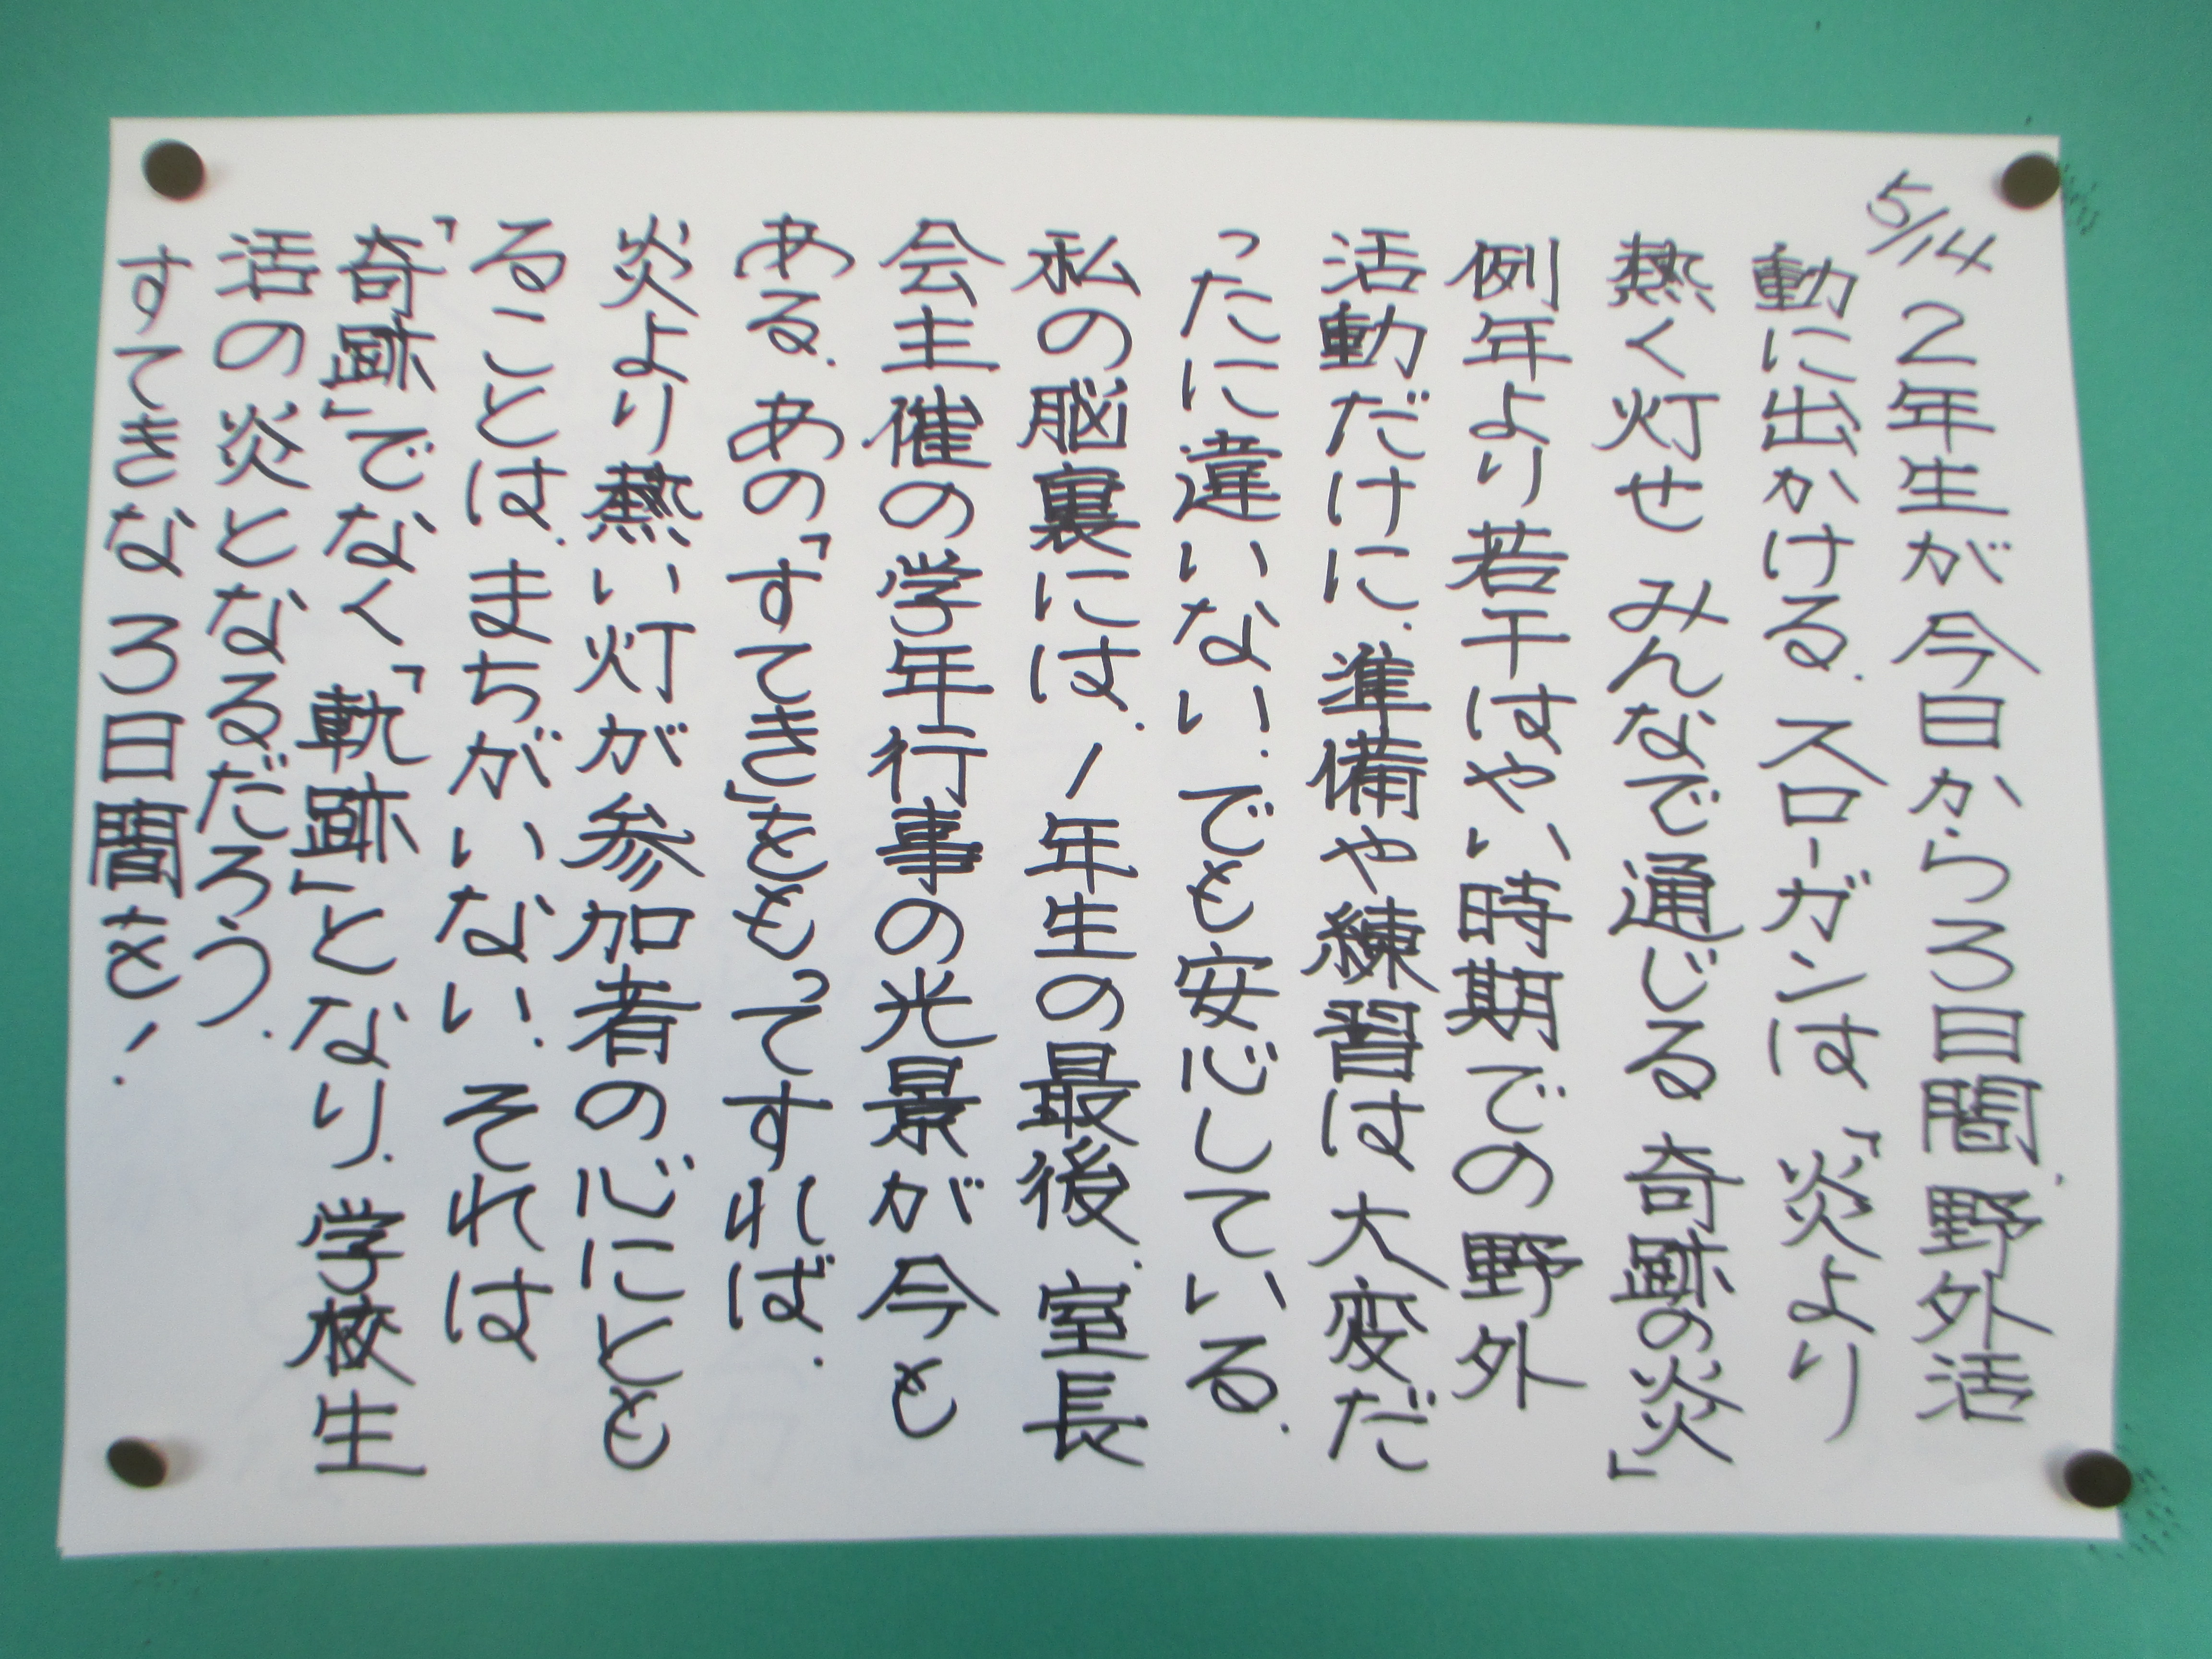 5/14
2年生が今日から3日間、野外活
動に出かける。スローガンは「炎より
熱く灯せ みんなで通じる 奇跡の炎」
例年より若干はやい時期での野外
活動だけに、準備や練習は大変だ
ったに違いない。でも安心している。
私の脳裏には、1年生の最後、室長
会主催の学年行事の光景が今も
ある。あの「すてき」をもってすれば、
炎より熱い灯が参加者の心にとも
ることは、まちがいない。それは
「奇跡」でなく「軌跡」となり、学校生
活の炎となるだろう。
すてきな3日間を!